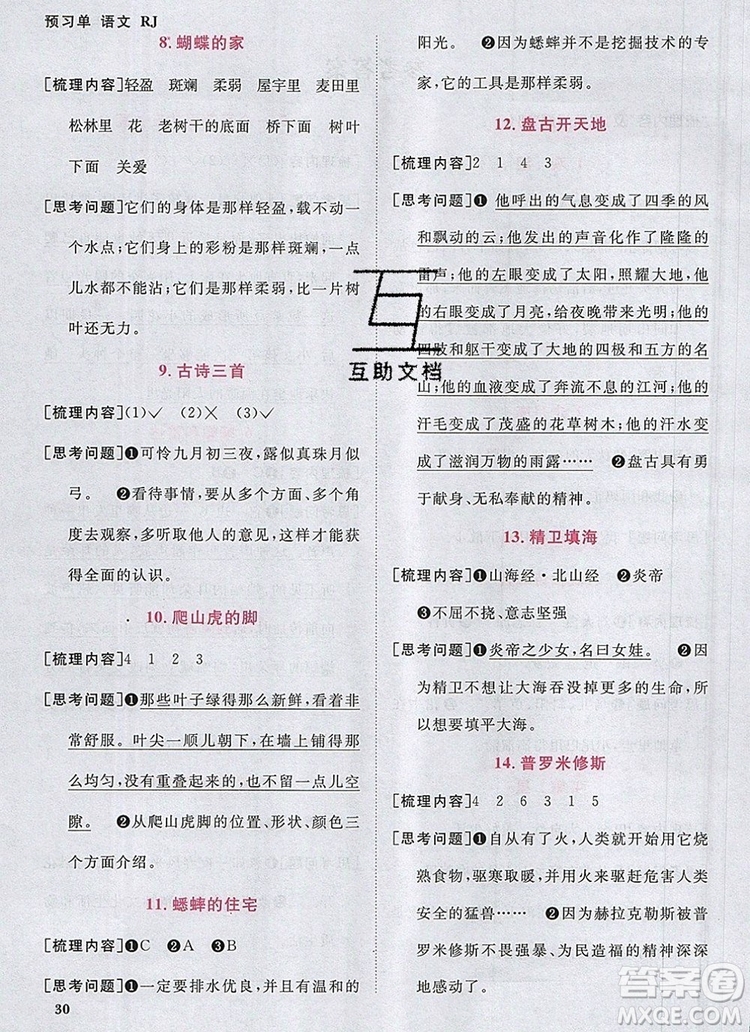 预习单 语文 RJ
8. 蝴蝶的家
[梳理内容]轻盈 斑斓 柔弱 屋宇里 麦田里
松林里 花 老树干的底面 桥下面 树叶
下面 关爱
[思考问题]它们的身体是那样轻盈，不能载起一
个水点；它们身上的彩粉是那样斑斓，一点
儿水都不能沾；它们是那样柔弱，比一片树
叶还无力。
9. 古诗三首
[梳理内容](1)✓ (2)✕ (3)✓
[思考问题]❶可怜九月初三夜，露似真珠月似
弓。 ❷看待事情，要从多个方面、多个角
度去观察，多听取他人的意见，才能获得
全面的认识。
10. 爬山虎的脚
[梳理内容]4 1 2 3
[思考问题]❶那些叶子绿得那么新鲜，看着非
常舒服。叶尖一顺儿朝下，在墙上铺得那
么均匀，没有重叠起来的，也不留一点儿空
隙。 ❷从爬山虎脚的位置、形状、颜色三
个方面介绍。
11. 蟋蟀的住宅
[梳理内容]❶C ❷A ❸B
[思考问题]❶一定要排水优良，并且有温和的
30
阳光。 ❷因为蟋蟀并不是挖掘技术的专
家，它的工具是那样柔弱。
12. 盘古开天地
[梳理内容]2 1 4 3
[思考问题]❶他呼出的气息变成了四季的风
和飘动的云；他发出的声音化作了隆隆的
雷声；他的左眼变成了太阳，照耀大地；他
的右眼变成了月亮，给夜晚带来光明；他的
四肢和躯干变成了大地的四极和五方的名
山；他的血液变成了奔流不息的江河；他的
汗毛变成了茂盛的花草树木；他的汗水变
成了滋润万物的雨露…… ❷盘古具有勇
于献身、无私奉献的精神。
13. 精卫填海
[梳理内容]❶山海经·北山经 ❷炎帝
❸不屈不挠、意志坚强
[思考问题]❶炎帝之少女，名曰女娃。 ❷因
为精卫不想让大海吞没掉更多的生命，所
以想要填平大海。
14. 普罗米修斯
[梳理内容]4 2 6 3 1 5
[思考问题]❶自从有了火，人类就开始用它烧
熟食物，驱寒取暖，并用火来驱赶危害人类
安全的猛兽…… ❷因为赫拉克勒斯被普
罗米修斯不畏强暴、为民造福的精神深深
地感动了。
互助文档
答案圈
MXQE.COM